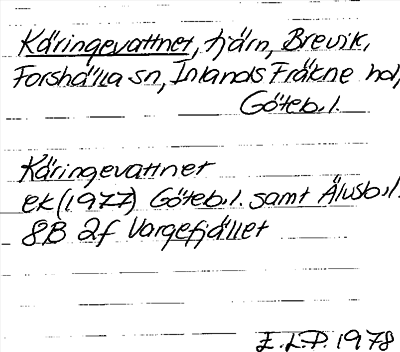 Käringevattnet, tjärn, Brevik,
Forshälla sn, Inlands Fräkne hd,
Göteb.l.
Käringevattnet
ek (1977) Göteb.l. samt Älvsb.l.
8B 2f Vargefjället
E.L.P. 1978